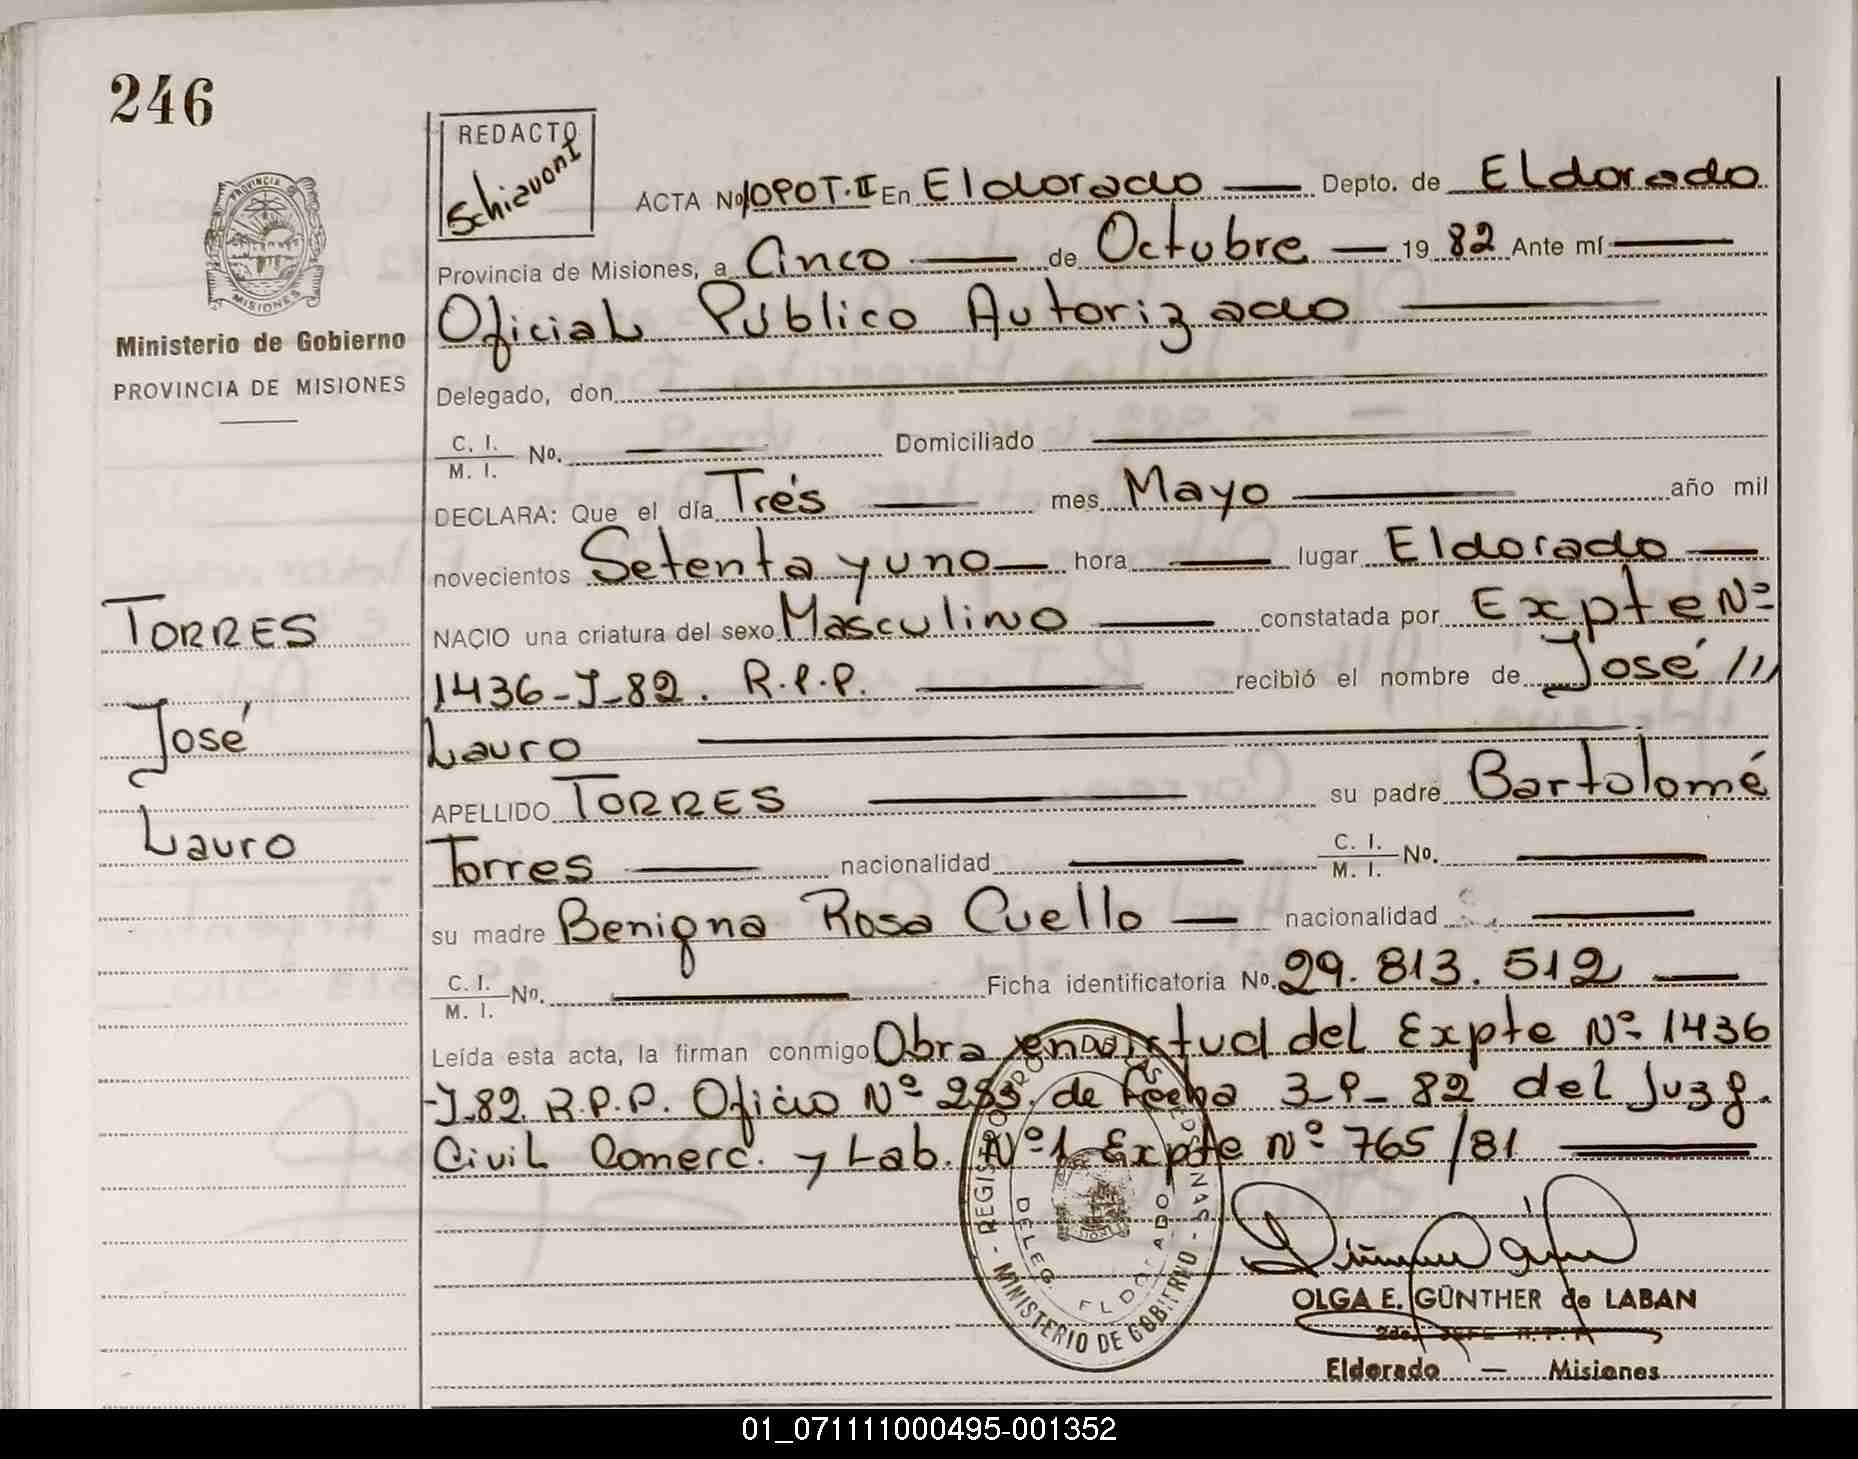 246
REDACTO
Schiavoni
ACTA No. 1090 T. II En Eldorado Depto. de Eldorado
Provincia de Misiones, a Cinco de Octubre 19 82 Ante mí
Oficial Público Autorizado
Ministerio de Gobierno
PROVINCIA DE MISIONES
Delegado, don
C. I.
M. I. No. Domiciliado
DECLARA: Que el día Trés mes Mayo año mil
novecientos Setenta y uno hora lugar Eldorado
NACIO una criatura del sexo Masculino constatada por Expte Nº
1436-J-82. R.P.P. recibió el nombre de José
Lauro
APELLIDO TORRES su padre Bartolomé
Torres nacionalidad C. I.
M. I. No.
su madre Benigna Rosa Cuello nacionalidad
C. I.
M. I. No. Ficha identificatoria No. 29.813.512
Leída esta acta, la firman conmigo Obra en virtud del Expte Nº 1436
-J-82 R.P.P. Oficio Nº de fecha 82 del Juzg.
Civil Comerc. y Lab. Nº 1 Expte Nº 765/81
TORRES
José
Lauro
PROVINCIA
MISIONES
MINISTERIO DE GOBIERNO
DELEG. ELDORADO
OLGA E. GÜNTHER de LABAN
Eldorado — Misiones
01_071111000495-001352